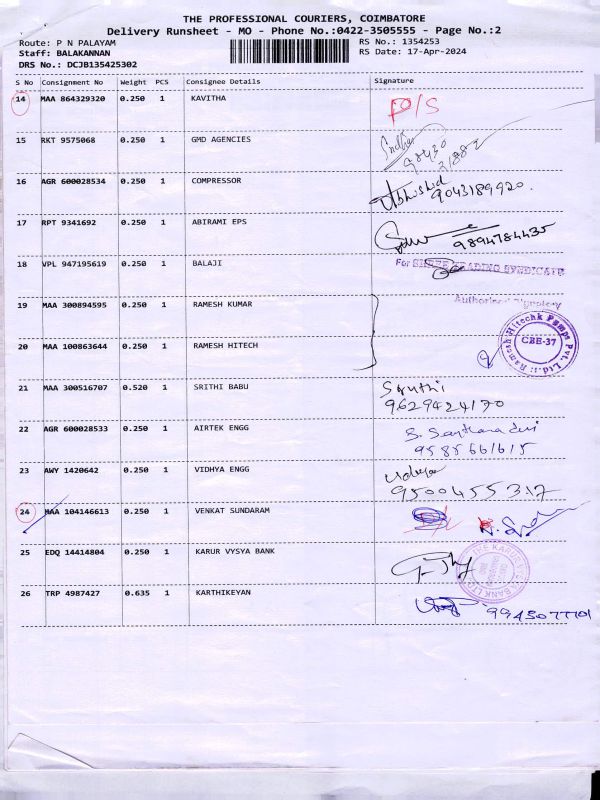 THE PROFESSIONAL COURIERS, COIMBATORE
Delivery Runsheet - MO - Phone No.:0422-3505555 - Page No.:2
Route: P N PALAYAM RS No.: 1354253
Staff: BALAKANNAN RS Date: 17-Apr-2024
DRS No.: DCJB135425302
S No Consignment No Weight PCS Consignee Details Signature
14 MAA 864329320 0.250 1 KAVITHA P/S
15 RKT 9575068 0.250 1 GMD AGENCIES
16 AGR 600028534 0.250 1 COMPRESSOR
9043189920.
17 RPT 9341692 0.250 1 ABIRAMI EPS
9894784435
18 VPL 947195619 0.250 1 BALAJI For SHREE TRADING SYNDICATE
Authorised Signatory
19 MAA 300894595 1 RAMESH KUMAR
20 MAA 100863644 0.250 1 RAMESH HITECH
Ramesh Hitechk Pumps Pvt. Ltd.
CBE-37
21 MAA 300516707 0.520 1 SRITHI BABU Sruthi
9629424170
22 AGR 600028533 0.250 1 AIRTEK ENGG
9585661615
23 AWY 1420642 0.250 1 VIDHYA ENGG
9500455317
24 MAA 104146613 0.250 1 VENKAT SUNDARAM
25 EDQ 14414804 0.250 1 KARUR VYSYA BANK
26 TRP 4987427 0.635 1 KARTHIKEYAN
9945077101